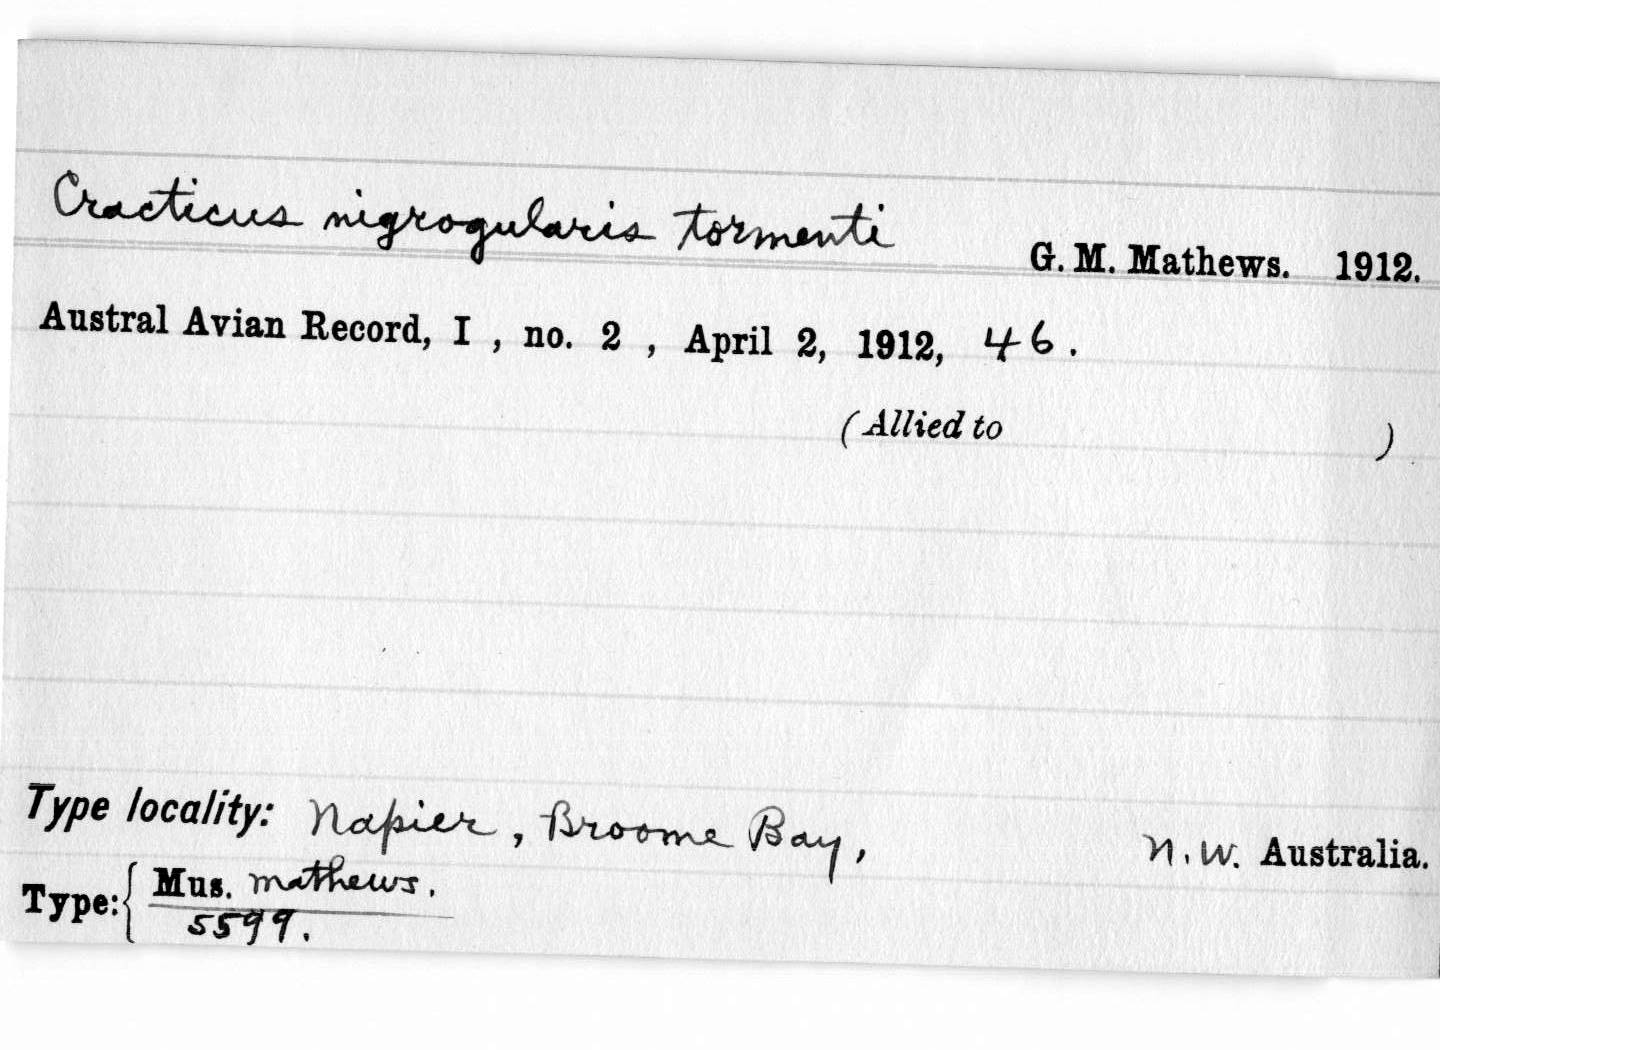 Cracticus nigrogularis tormenti G. M. Mathews. 1912.
Austral Avian Record, I , no. 2 , April 2, 1912, 46.
(Allied to )
Type locality: Napier, Broome Bay, N.W. Australia.
Type: { Mus. Mathews.
5599.